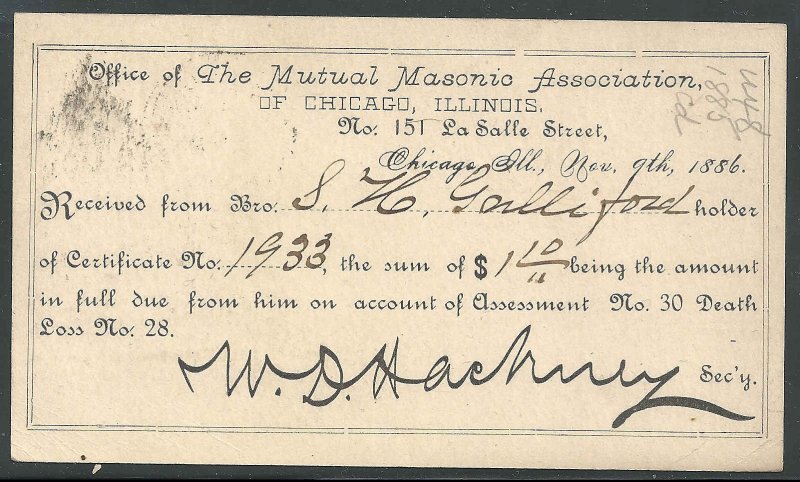 Office of The Mutual Masonic Association,
OF CHICAGO, ILLINOIS.
No. 151 La Salle Street,
Chicago Ill., Nov. 9th, 1886.
Received from Bro. S. H. Galliford holder
of Certificate No. 1933, the sum of $ 1 10/11 being the amount
in full due from him on account of Assessment No. 30 Death
Loss No. 28.
W. D. Hackney Sec'y.